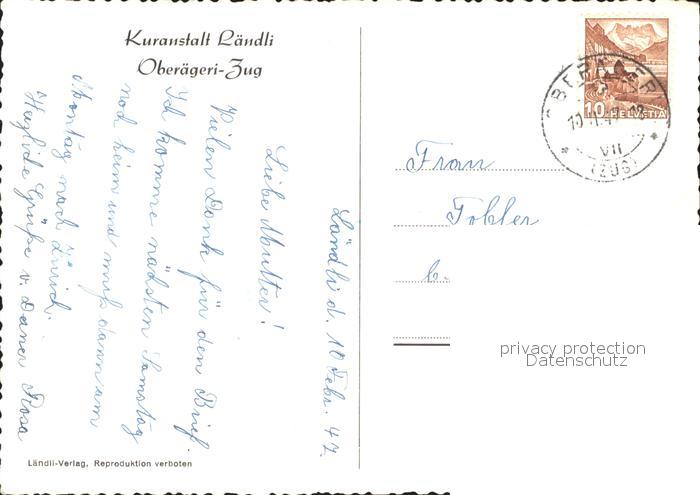 Kuranstalt Ländli
Oberägeri-Zug
Ländli d. 10 Febr. 47
Liebe Mutter!
Vielen Dank für den Brief.
Ich komme nächsten Samstag
noch heim und muß dann am
Montag nach Zürich.
Herzliche Grüße v. Deiner Rosa
Ländli-Verlag, Reproduktion verboten
10 HELVETIA
VII
(ZUG)
Frau
Tobler
b.
privacy protection
Datenschutz